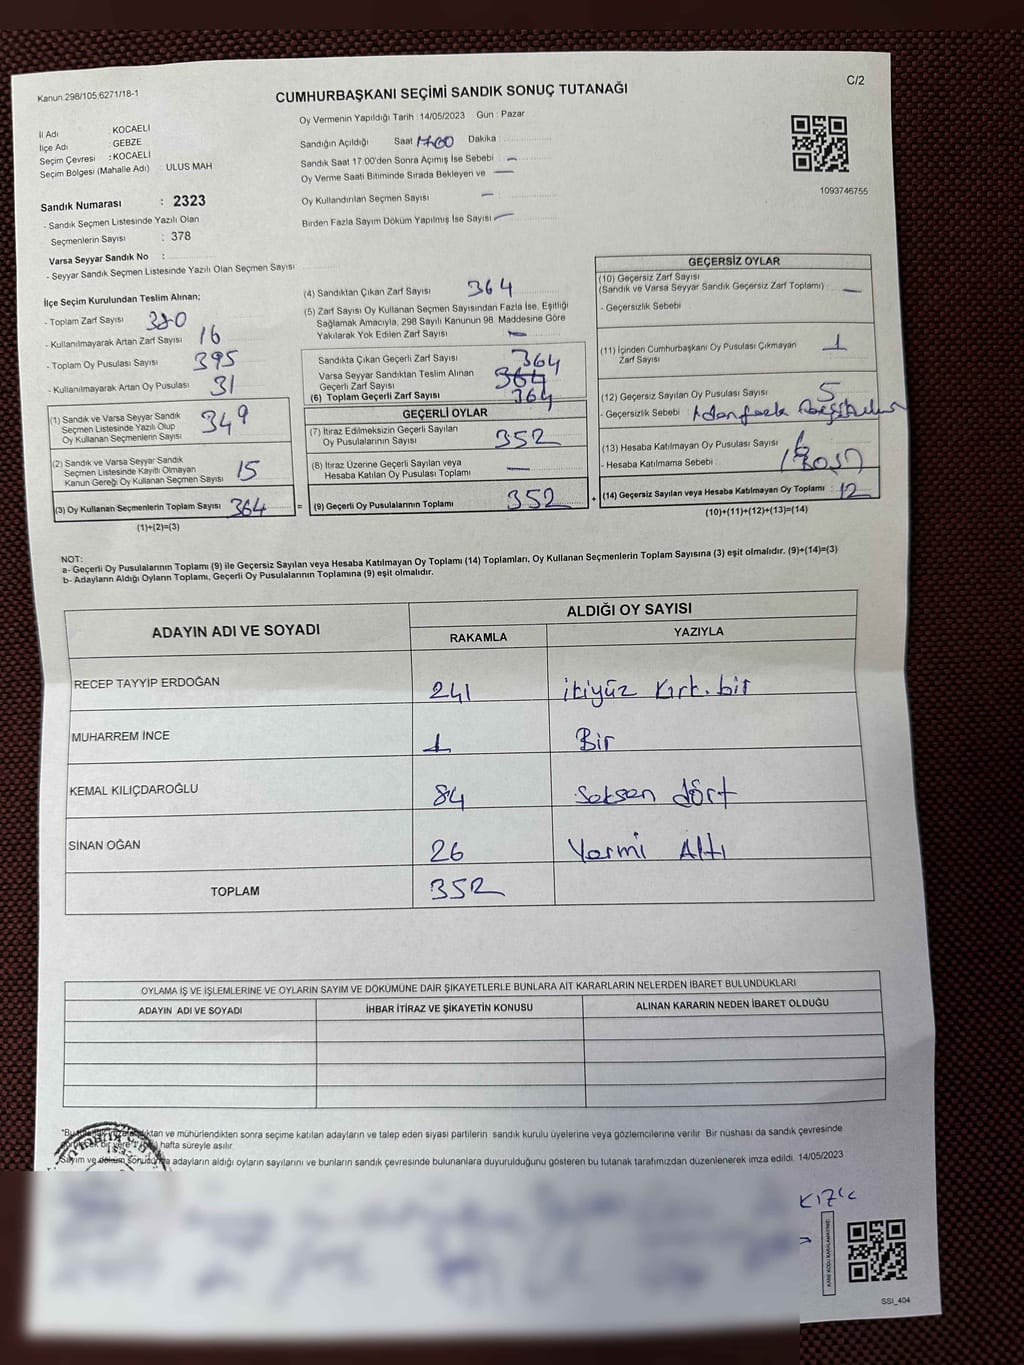 Kanun 298/105;6271/18-1
C/2
CUMHURBAŞKANI SEÇİMİ SANDIK SONUÇ TUTANAĞI
Oy Vermenin Yapıldığı Tarih : 14/05/2023 Gün : Pazar
İl Adı : KOCAELİ
İlçe Adı : GEBZE
Seçim Çevresi : KOCAELİ
Seçim Bölgesi (Mahalle Adı) : ULUS MAH
Sandığın Açıldığı Saat 17:00 Dakika :
Sandık Saat 17:00'den Sonra Açımış İse Sebebi : —
Oy Verme Saati Bitiminde Sırada Bekleyen ve —
Oy Kullandırılan Seçmen Sayısı —
Birden Fazla Sayım Döküm Yapılmış İse Sayısı —
1093746755
Sandık Numarası : 2323
- Sandık Seçmen Listesinde Yazılı Olan
Seçmenlerin Sayısı : 378
Varsa Seyyar Sandık No :
- Seyyar Sandık Seçmen Listesinde Yazılı Olan Seçmen Sayısı :
İlçe Seçim Kurulundan Teslim Alınan;
- Toplam Zarf Sayısı 380
- Kullanılmayarak Artan Zarf Sayısı 16
- Toplam Oy Pusulası Sayısı 395
- Kullanılmayarak Artan Oy Pusulası 31
(1) Sandık ve Varsa Seyyar Sandık
Seçmen Listesinde Yazılı Olup
Oy Kullanan Seçmenlerin Sayısı 349
(2) Sandık ve Varsa Seyyar Sandık
Seçmen Listesinde Kayıtlı Olmayan
Kanun Gereği Oy Kullanan Seçmen Sayısı 15
(3) Oy Kullanan Seçmenlerin Toplam Sayısı 364
(1)+(2)=(3)
(4) Sandıktan Çıkan Zarf Sayısı 364
(5) Zarf Sayısı Oy Kullanan Seçmen Sayısından Fazla İse, Eşitliği
Sağlamak Amacıyla, 298 Sayılı Kanunun 98. Maddesine Göre
Yakılarak Yok Edilen Zarf Sayısı —
Sandıkta Çıkan Geçerli Zarf Sayısı 364
Varsa Seyyar Sandıktan Teslim Alınan
Geçerli Zarf Sayısı 364
(6) Toplam Geçerli Zarf Sayısı 364
GEÇERLİ OYLAR
(7) İtiraz Edilmeksizin Geçerli Sayılan
Oy Pusulalarının Sayısı 352
(8) İtiraz Üzerine Geçerli Sayılan veya
Hesaba Katılan Oy Pusulası Toplamı —
= (9) Geçerli Oy Pusulalarının Toplamı 352
GEÇERSİZ OYLAR
(10) Geçersiz Zarf Sayısı
(Sandık ve Varsa Seyyar Sandık Geçersiz Zarf Toplamı) : —
- Geçersizlik Sebebi :
(11) İçinden Cumhurbaşkanı Oy Pusulası Çıkmayan
Zarf Sayısı : 1
(12) Geçersiz Sayılan Oy Pusulası Sayısı : 5
- Geçersizlik Sebebi :
(13) Hesaba Katılmayan Oy Pusulası Sayısı : 6
- Hesaba Katılmama Sebebi :
+ (14) Geçersiz Sayılan veya Hesaba Katılmayan Oy Toplamı : 12
(10)+(11)+(12)+(13)=(14)
NOT:
a- Geçerli Oy Pusulalarının Toplamı (9) ile Geçersiz Sayılan veya Hesaba Katılmayan Oy Toplamı (14) Toplamları, Oy Kullanan Seçmenlerin Toplam Sayısına (3) eşit olmalıdır. (9)+(14)=(3)
b- Adayların Aldığı Oyların Toplamı, Geçerli Oy Pusulalarının Toplamına (9) eşit olmalıdır.
ADAYIN ADI VE SOYADI
ALDIĞI OY SAYISI
RAKAMLA YAZIYLA
RECEP TAYYIP ERDOĞAN 241 ikiyüz Kırk.bir
MUHARREM İNCE 1 Bir
KEMAL KILIÇDAROĞLU 84 Seksen dört
SİNAN OĞAN 26 Yermi Altı
TOPLAM 352
OYLAMA İŞ VE İŞLEMLERİNE VE OYLARIN SAYIM VE DÖKÜMÜNE DAİR ŞİKAYETLERLE BUNLARA AİT KARARLARIN NELERDEN İBARET BULUNDUKLARI
ADAYIN ADI VE SOYADI İHBAR İTİRAZ VE ŞİKAYETİN KONUSU ALINAN KARARIN NEDEN İBARET OLDUĞU
ve mühürlendikten sonra seçime katılan adayların ve talep eden siyasi partilerin sandık kurulu üyelerine veya gözlemcilerine verilir. Bir nüshası da sandık çevresinde
hafta süreyle asılır.
Sayım ve döküm sonucunda adayların aldığı oyların sayılarını ve bunların sandık çevresinde bulunanlara duyurulduğunu gösteren bu tutanak tarafımızdan düzenlenerek imza edildi. 14/05/2023
SSI_404